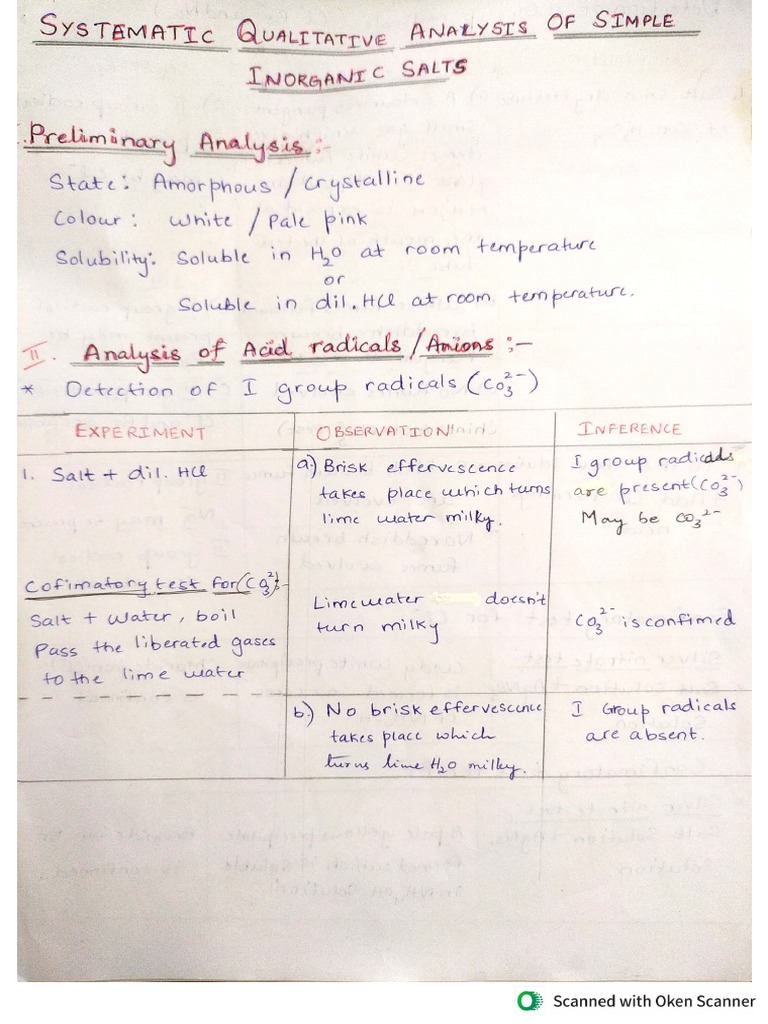 SYSTEMATIC QUALITATIVE ANALYSIS OF SIMPLE
INORGANIC SALTS
I. Preliminary Analysis :-
State: Amorphous / crystalline
Colour: White / Pale pink
Solubility: Soluble in H₂O at room temperature
or
Soluble in dil. HCl at room temperature.
II. Analysis of Acid radicals / Anions :-
* Detection of I group radicals (CO₃²⁻)
EXPERIMENT
1. Salt + dil. HCl
Cofimatory test for (CO₃²⁻):-
Salt + Water, boil
Pass the liberated gases
to the lime water
OBSERVATION
a.) Brisk effervescence
takes place which turns
lime water milky.
Limewater doesn't
turn milky
b.) No brisk effervescence
takes place which
turns lime H₂O milky.
INFERENCE
I group radicals
are present (CO₃²⁻)
May be CO₃²⁻
CO₃²⁻ is confimed
I Group radicals
are absent.
Scanned with Oken Scanner